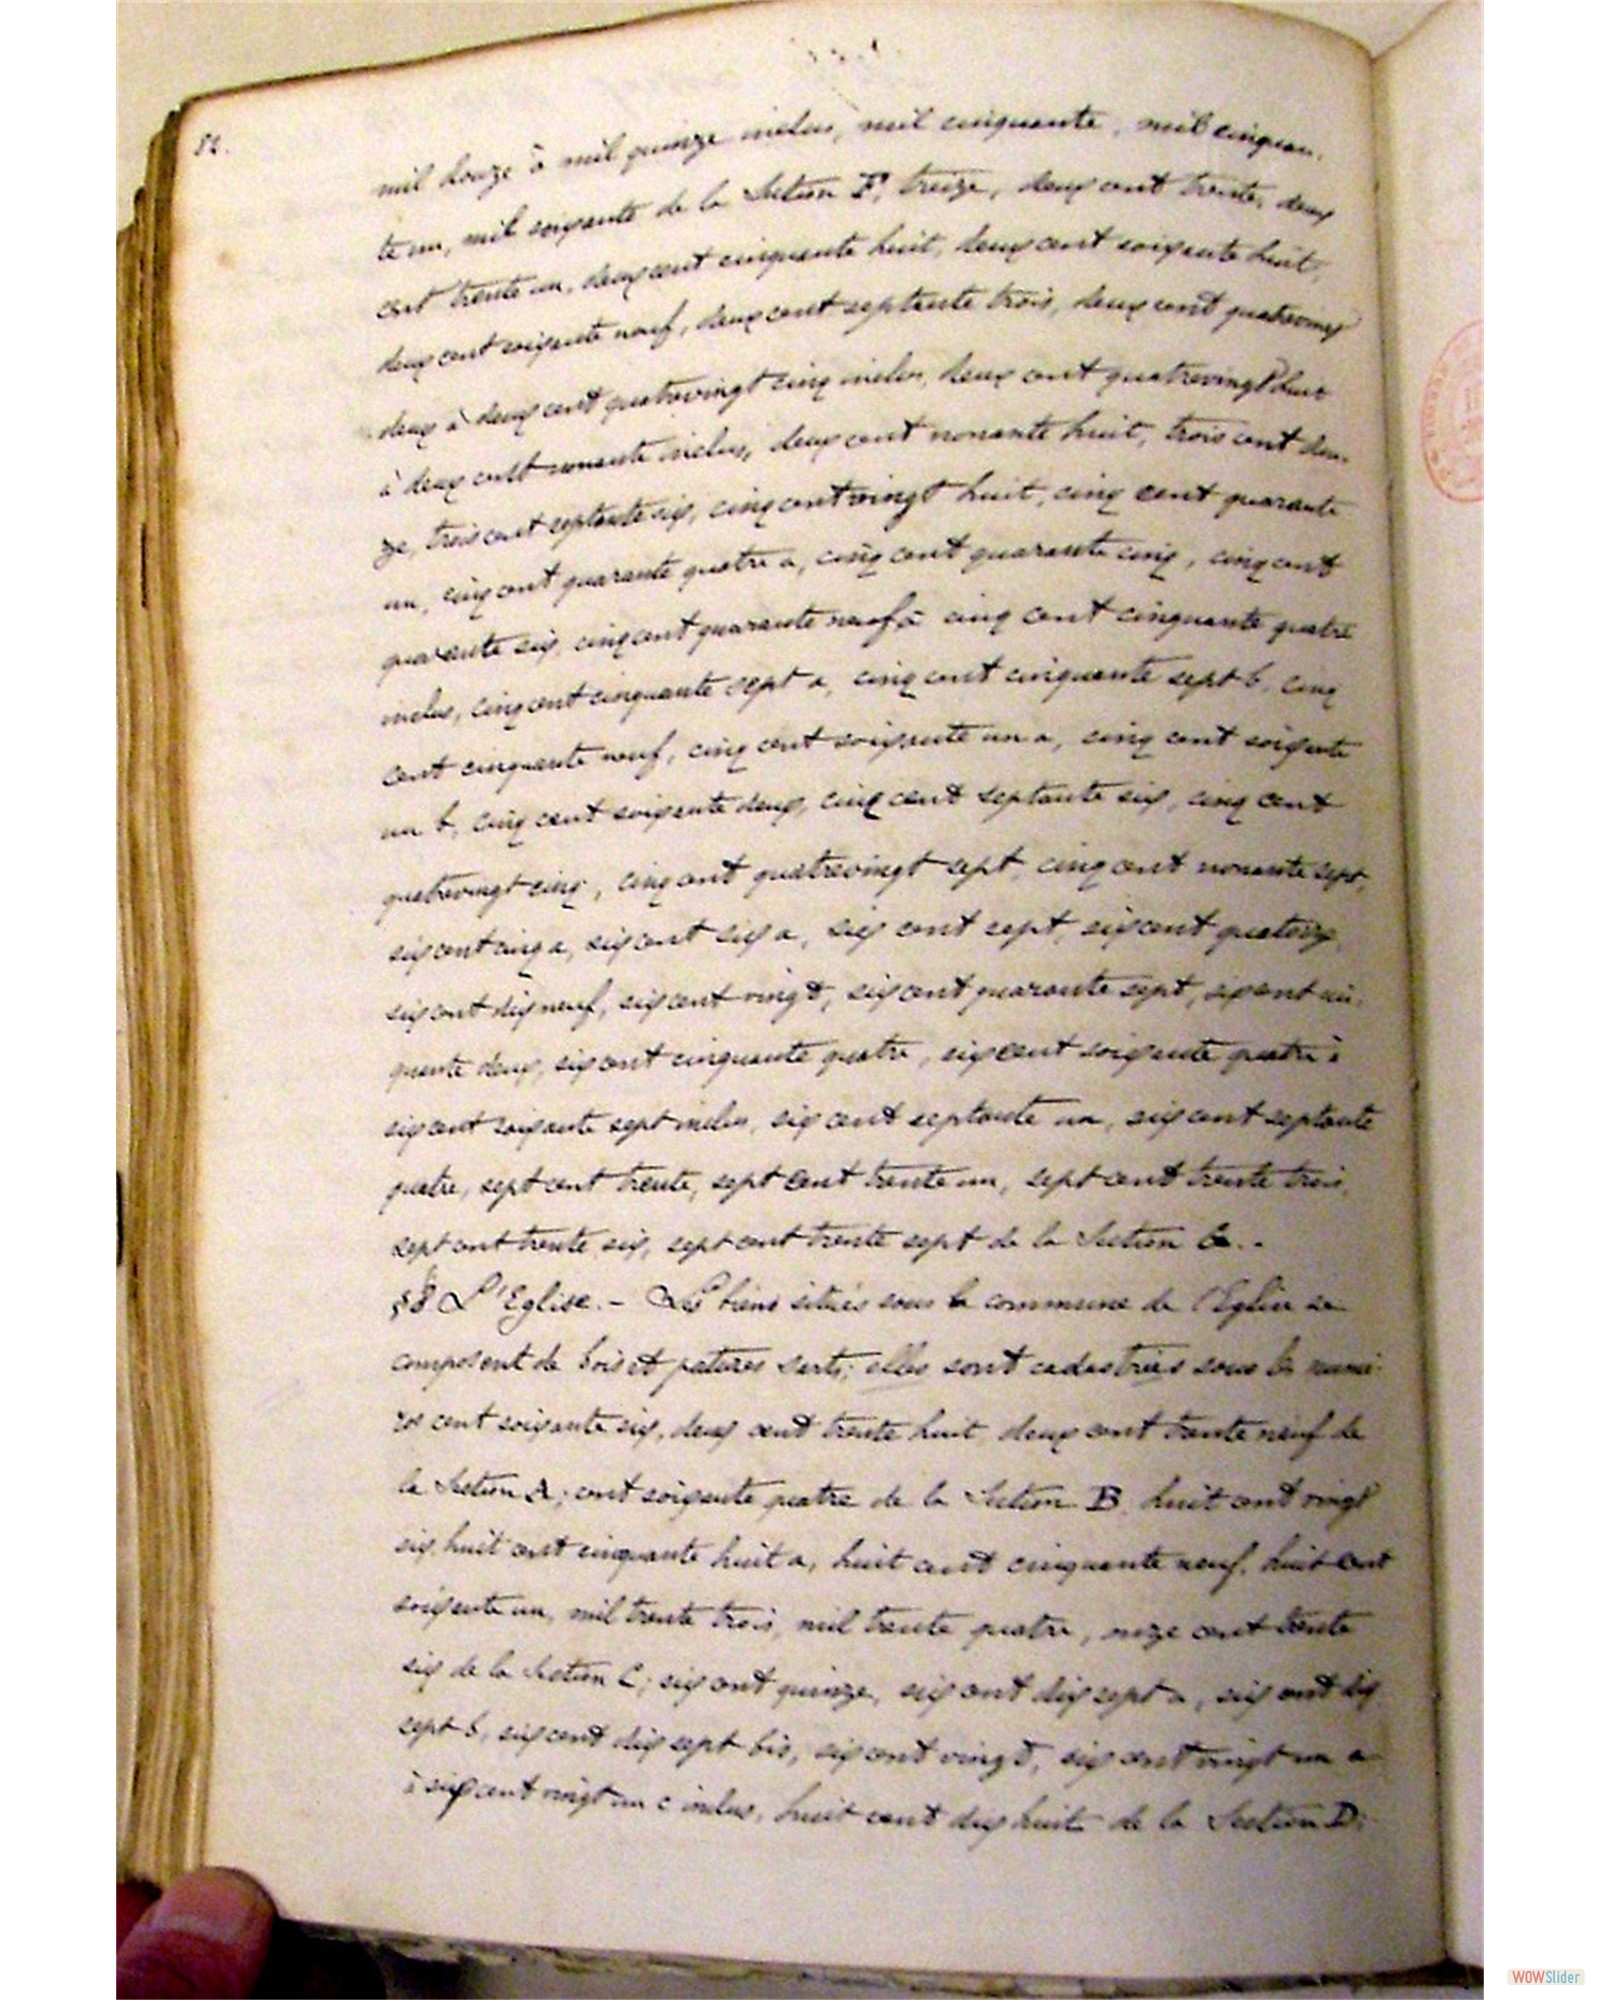 82.
mil douze à mil quinze inclus, mil cinquante, mil cinquan-
te un, mil soixante de la Section F; treize, deux cent trente, deux
cent trente un, deux cent cinquante huit, deux cent soixante huit,
deux cent soixante neuf, deux cent septante trois, deux cent quatrevingt
deux à deux cent quatrevingt cinq inclus, deux cent quatrevingt huit
à deux cent nonante inclus, deux cent nonante huit, trois cent dou-
ze, trois cent septante six, cinq cent vingt huit, cinq cent quarante
un, cinq cent quarante quatre a, cinq cent quarante cinq, cinq cent
quarante six, cinq cent quarante neuf à cinq cent cinquante quatre
inclus, cinq cent cinquante sept a, cinq cent cinquante sept b, cinq
cent cinquante neuf, cinq cent soixante un a, cinq cent soixante
un b, cinq cent soixante deux, cinq cent septante six, cinq cent
quatrevingt cinq, cinq cent quatrevingt sept, cinq cent nonante sept,
six cent cinq a, six cent six a, six cent sept, six cent quatorze,
six cent dix neuf, six cent vingt, six cent quarante sept, six cent cin-
quante deux, six cent cinquante quatre, six cent soixante quatre à
six cent soixante sept inclus, six cent septante un, six cent septante
quatre, sept cent trente, sept cent trente un, sept cent trente trois,
sept cent trente six, sept cent trente sept de la Section
§8 L'Eglise. - Les biens situés sous la commune de l'Eglise se
composent de bois et patures sarts; elles sont cadastrées sous les numé-
ros cent soixante six, deux cent trente huit, deux cent trente neuf de
la Section A; cent soixante quatre de la Section B. huit cent vingt
six, huit cent cinquante huit a, huit cent cinquante neuf, huit cent
soixante un, mil trente trois, mil trente quatre, onze cent trente
six de la Section C; six cent quinze, six cent dix sept a, six cent dix
sept b, six cent dix sept bis, six cent vingt, six cent vingt un a
à six cent vingt un c inclus, huit cent dix huit de la Section D;
WOWSlider